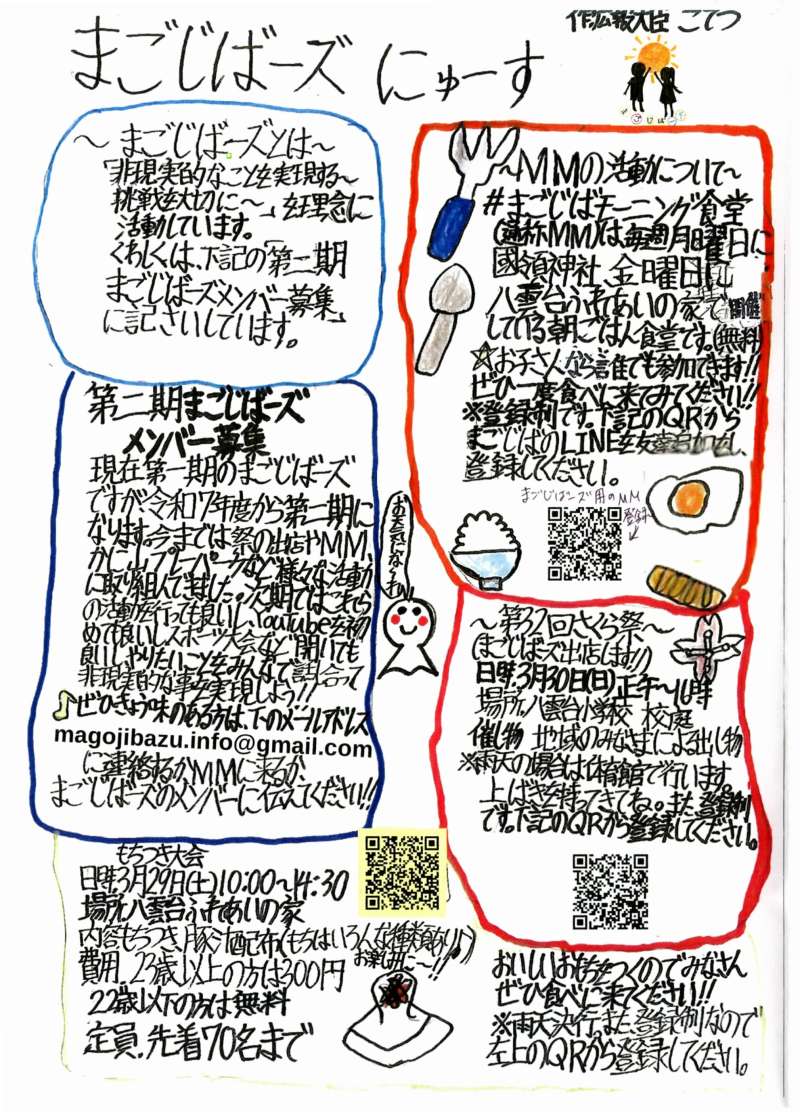 まごじばーズ にゅーす
作:広報大臣 こてつ
〜 まごじばーズとは〜
「非現実的なことを実現する〜
挑戦を大切に〜」を理念に
活動しています。
くわしくは、下記の「第二期
まごじばーズメンバー募集」
に記さいしています。
〜MMの活動について〜
#まごじばモーニング食堂
(通称MM)は毎週月曜日に
國領神社 金曜日に
八雲台ふれあいの家で開催
している朝ごはん食堂です。(無料)
☆お子さんなら誰でも参加できます!!
ぜひ一度食べに来てみてください!!
※登録制です。下記のQRから
まごじばのLINEを友達追加をし、
登録してください。
まごじばーズ用のMM
登録
第二期まごじばーズ
メンバー募集
現在第一期のまごじばーズ
ですが、令和7年度から第二期に
なります。今までは祭の出店やMM、
かに山プレーパークなど様々な活動
に取り組んできました。次期ではこれら
の活動を行っても良いし、YouTubeを初
めても良いしスポーツ大会など開いても
良いし、やりたいことをみんなで話し合って
非現実的な事を実現しよう!!
♪ぜひきょう味のある方は、下のメールアドレス
magojibazu.info@gmail.com
に連絡するかMMに来るか
まごじばーズのメンバーに伝えてください!!
お天気になぁれ
〜第37回さくら祭〜
(まごじばーズ出店します!!)
日時.3月30日(日)正午〜16時
場所.八雲台小学校 校庭
催し物 地域のみなさまによる出し物
※雨天の場合は体育館で行います。
上ばきを持ってきてね。また登録制
です。下記のQRから登録してください。
もちつき大会
日時.3月29日(土)10:00〜14:30
場所.八雲台ふれあいの家
内容.もちつき、豚汁配布(もちはいろんな種類あり♪)
お楽しみに〜!!
費用.23歳以上の方は300円
22歳以下の方は無料
定員.先着70名まで
おいしいおもちをつくのでみなさん
ぜひ食べに来てください!!
※雨天決行。また登録制なので
左上のQRから登録してください。